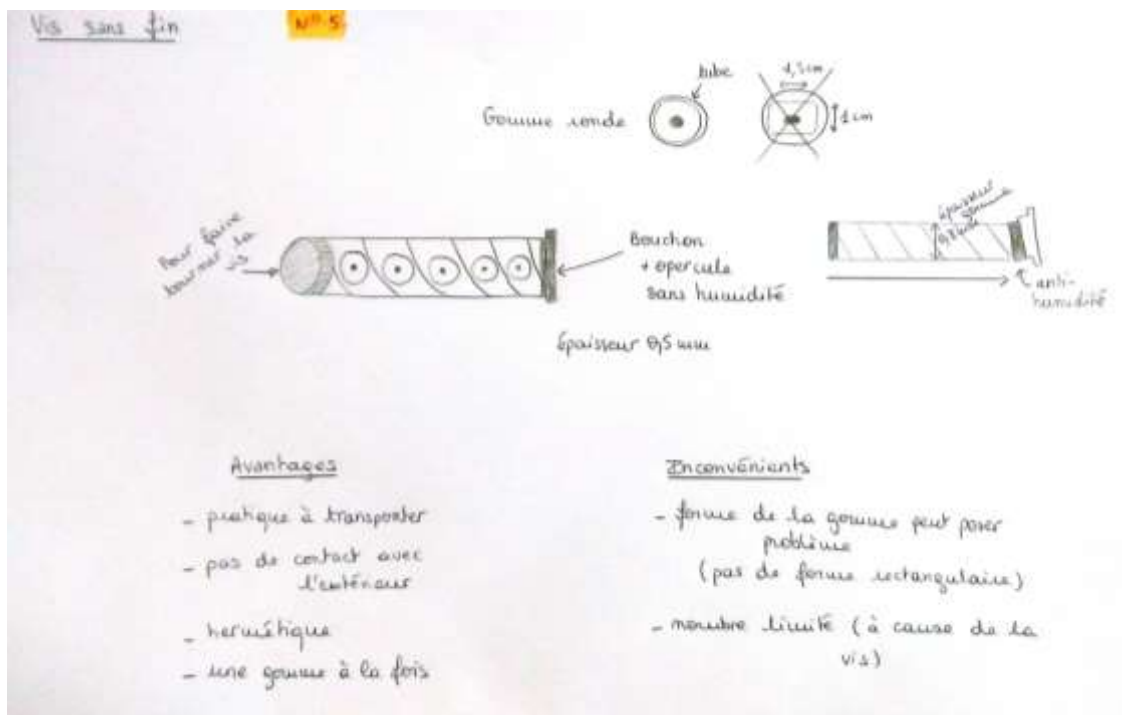 Vis sans fin
N° 5.
Gomme ronde
tube
1,5 cm
1 cm
Pour faire
tourner la
vis
Bouchon
+ opercule
sans humidité
Épaisseur 0,5 mm
épaisseur
gomme
anti-
humidité
Avantages
- pratique à transporter
- pas de contact avec
l'extérieur
- hermétique
- une gomme à la fois
Inconvénients
- forme de la gomme peut poser
problème
(pas de forme rectangulaire)
- nombre limité (à cause de la
vis)